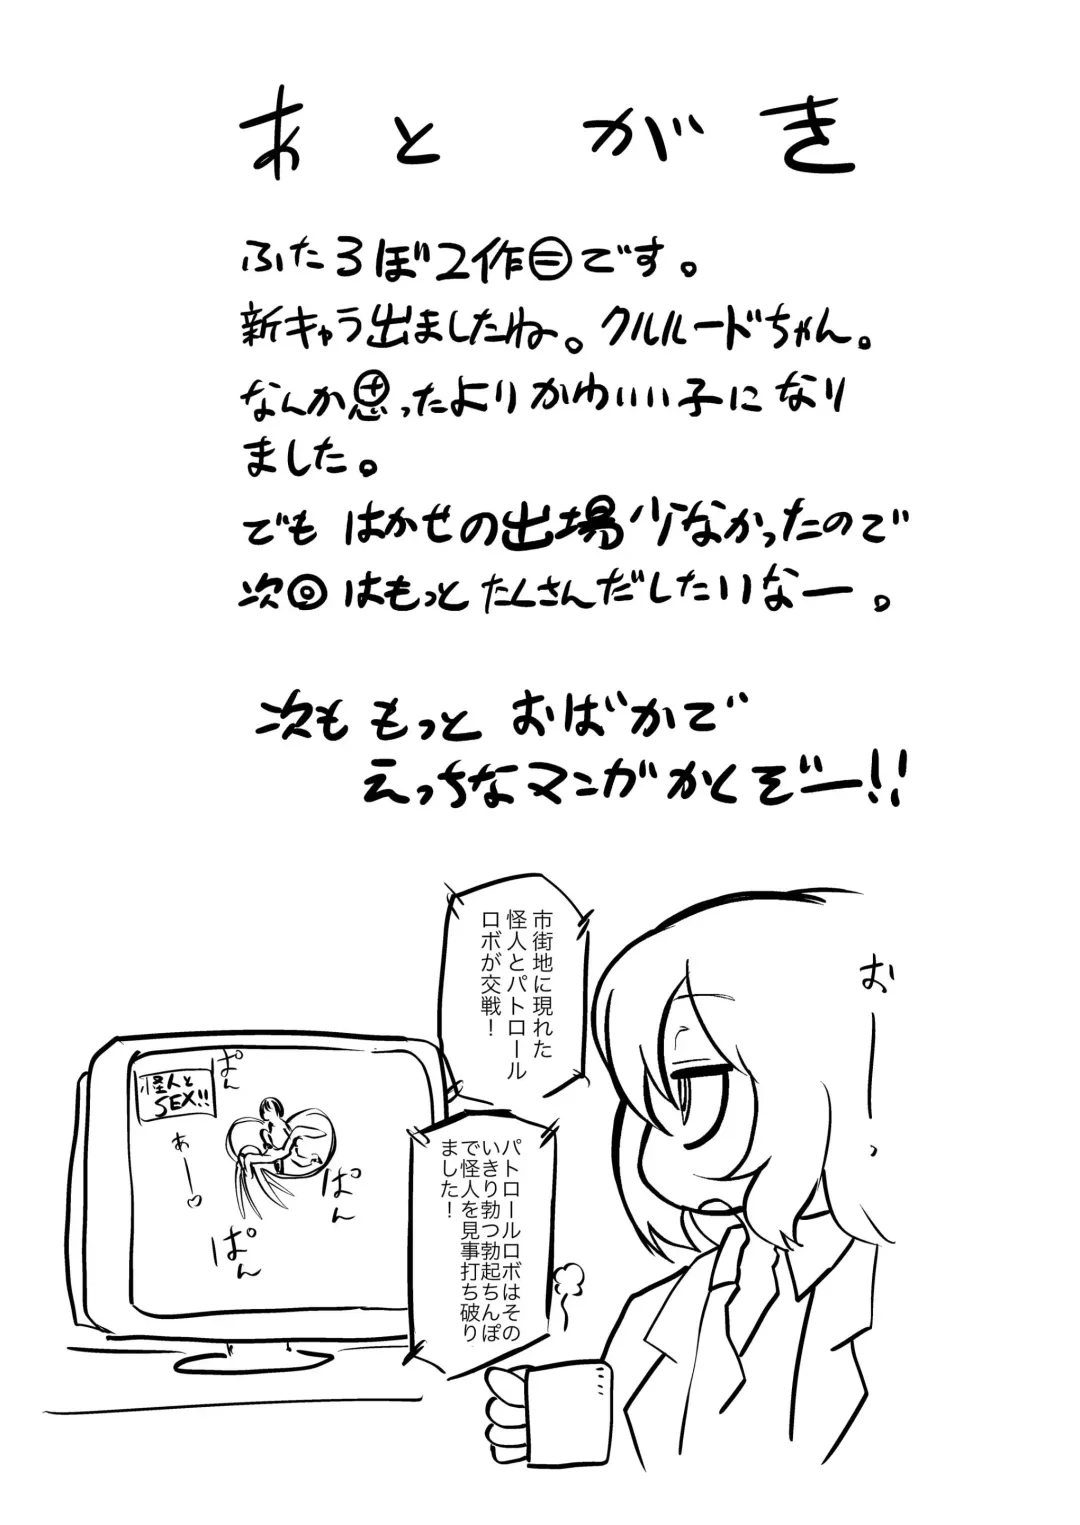 あとがき
ふたろぼ2作目です。
新キャラ出ましたね。クルルードちゃん。
なんか思ったよりかわいい子になり
ました。
でも はかせの出場少なかったので
次回はもっとたくさんだしたいなー。
次ももっと おばかで
えっちなマンガかくぞー!!
市街地に現れた
怪人とパトロール
ロボが交戦!
お
ー
っ
パトロールロボはその
いきり勃つ勃起ちんぽ
で怪人を見事打ち破り
ました!
怪人と
SEX!!
ぱん
あー♡
ぱん
ぱん